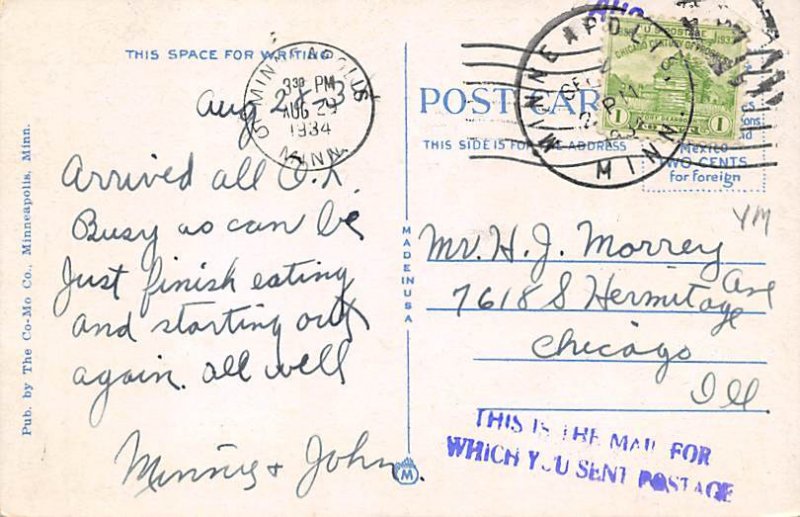 THIS SPACE FOR WRITING
MINNEAPOLIS
3 30 PM
AUG 29
1934
MINN.
Arrived all O.K.
Busy as can be
Just finish eating
and starting out
again. all well
Minnie & John.
Pub. by The Co-Mo Co., Minneapolis, Minn.
MADE IN USA
M
POST CARD
THIS SIDE IS FOR THE ADDRESS
MINNEAPOLIS
MINN
U S POSTAGE
CHICAGO CENTURY OF PROGRESS
1 1
Mexico
TWO CENTS
for foreign
YM
Mr. H. J. Morrey
7618 S Hermitage Ave
Chicago
Ill
THIS IS THE MAIL FOR
WHICH YOU SENT POSTAGE